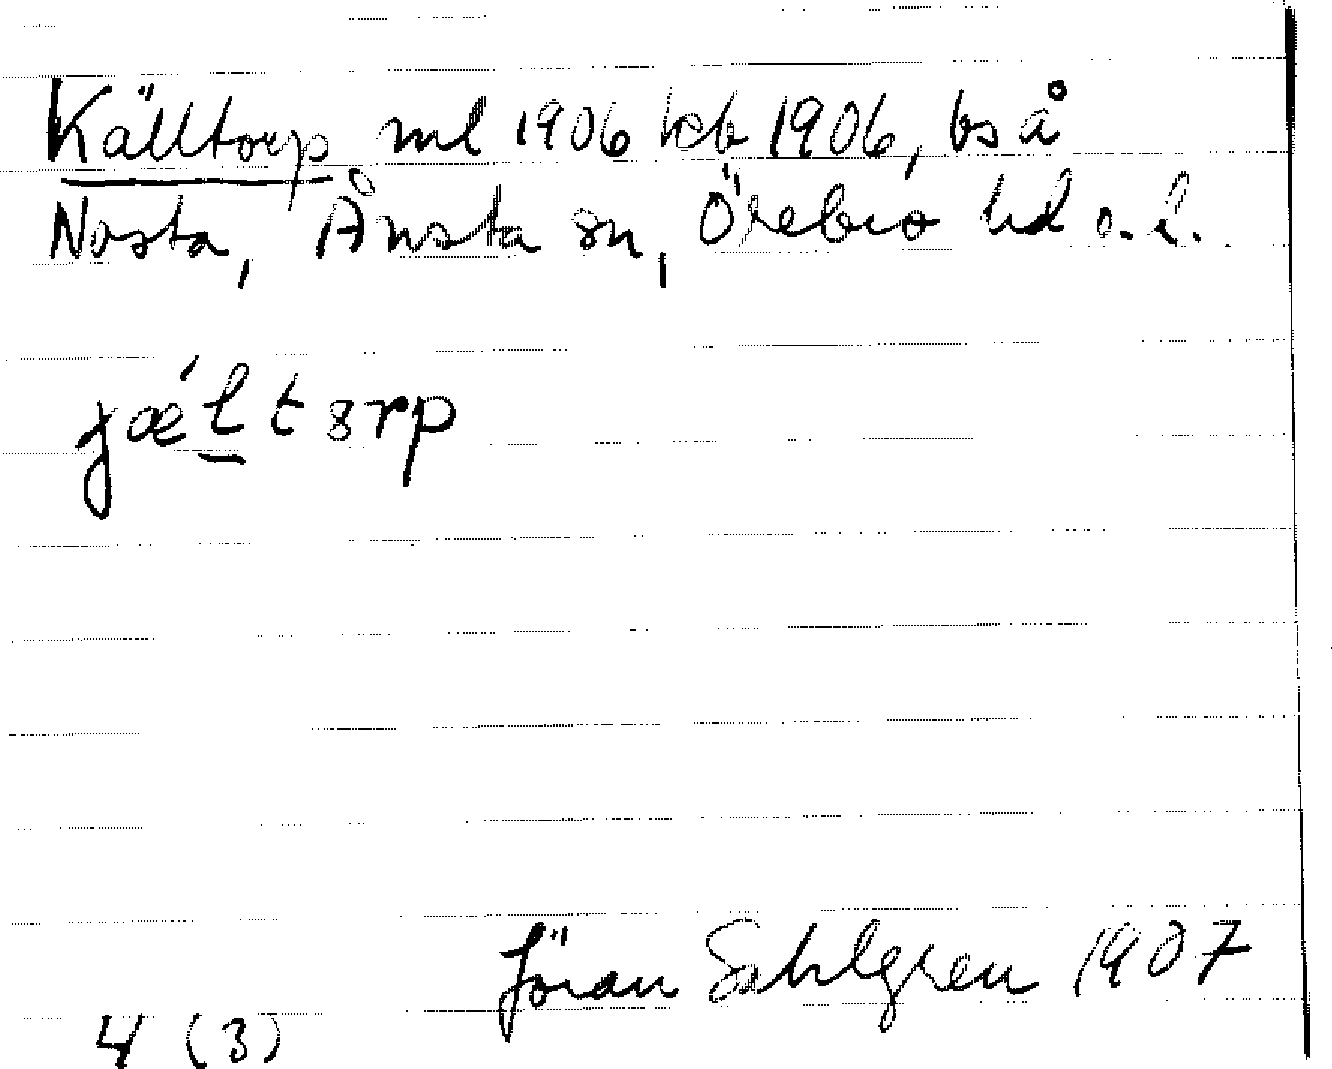 Källtorp ml 1906 kb 1906, bs å
Nasta, Ånsta sn, Örebro hd o. l.
jǽltɤrp
Jöran Sahlgren 1907
4 (3)